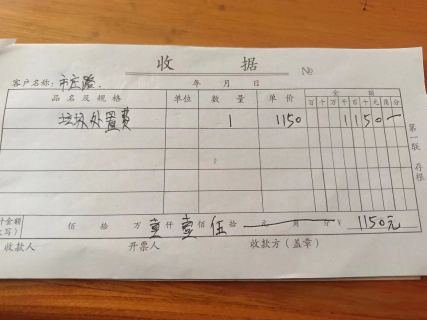 收 据 №
客户名称：市庄路. 年 月 日
品名及规格 单位 数量 单价 金额
百 十 万 千 百 十 元 角 分
垃圾处置费 1 1150 1 1 5 0 —
第一联 存根
计金额(大写) 佰 拾 万 壹 仟 壹 佰 伍 拾 元 角 分 ¥ 1150元
收款人 开票人 收款方（盖章）